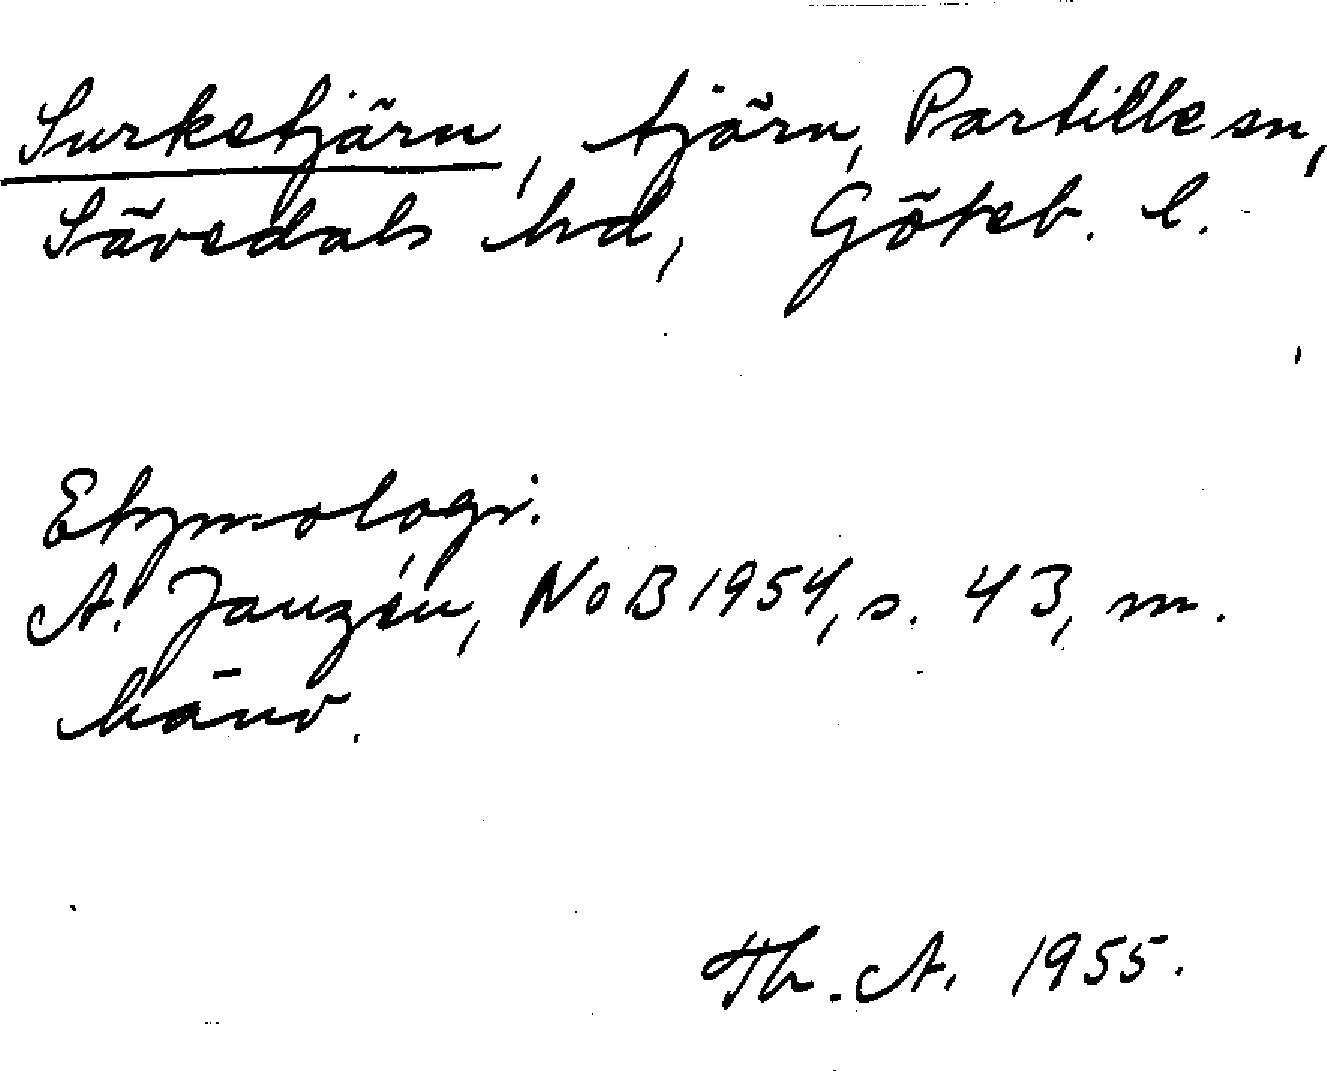 Surketjärn, tjärn, Partille sn,
Sävedals hd, Göteb. l.
Etymologi.
A. Janzén, NoB 1954, s. 43, m.
hänv.
Th. A. 1955.